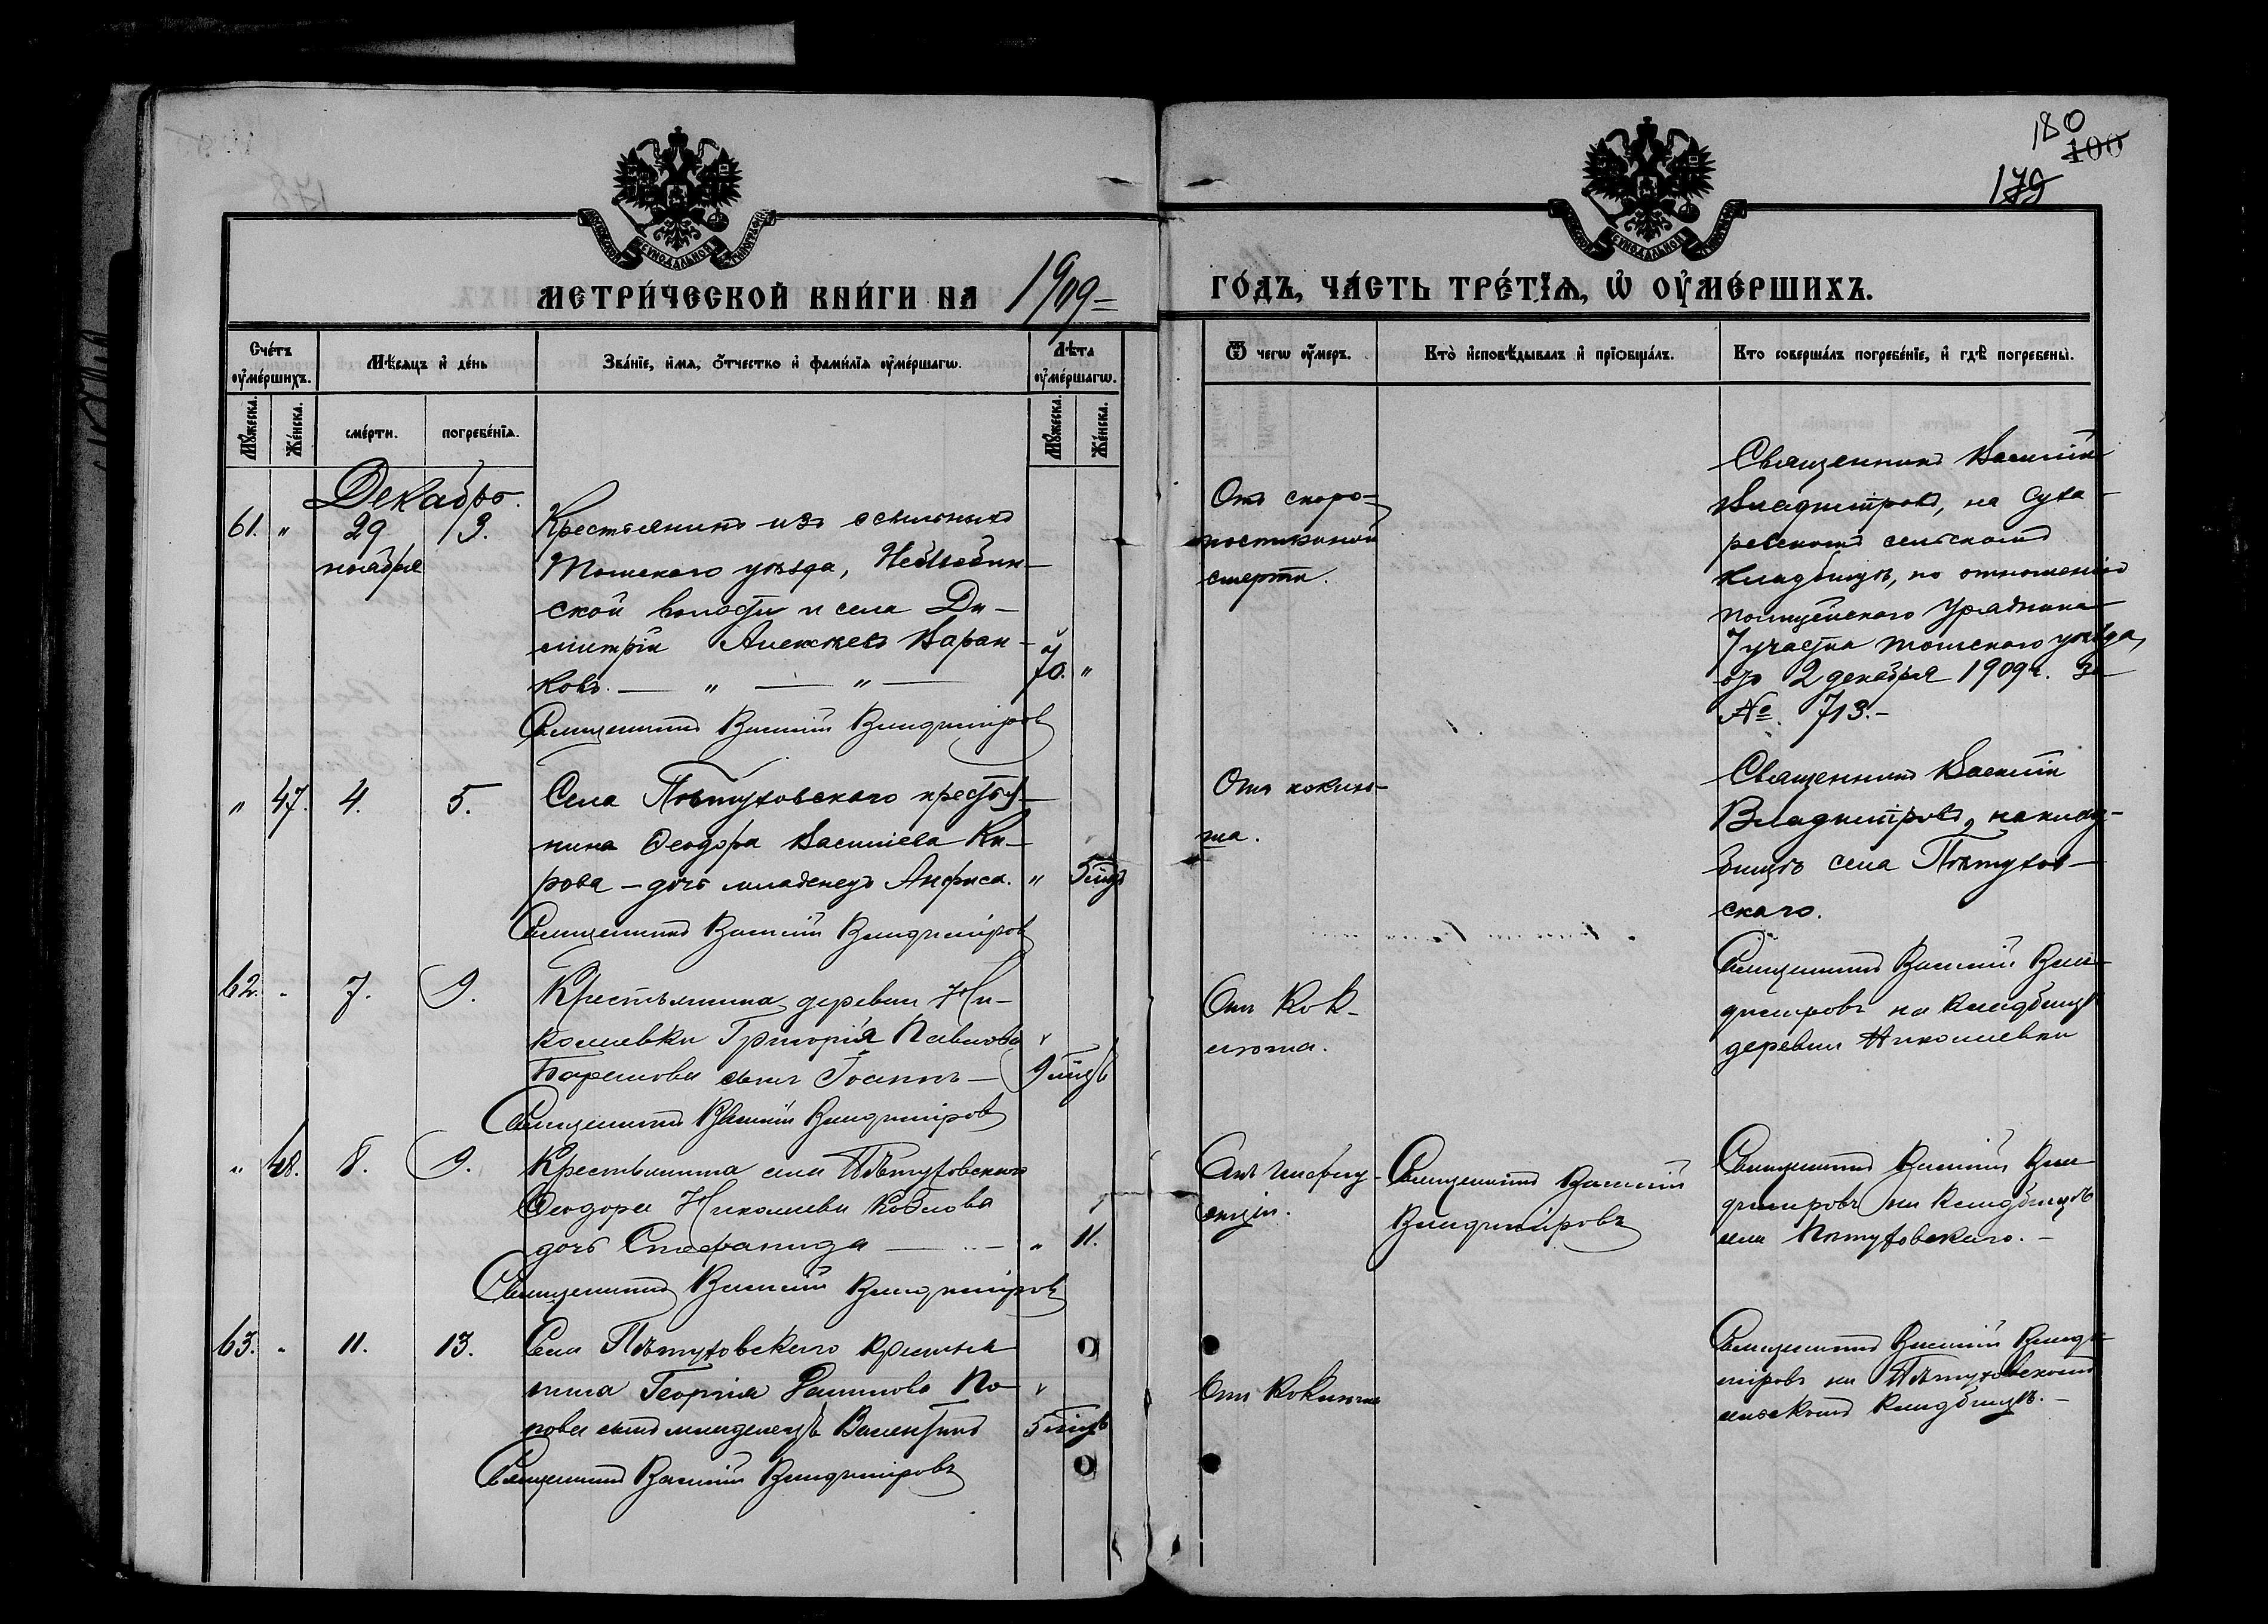 180
100
179
МЕТРИ́ЧЕСКОЙ КНИ́ГИ НА 1909
ГО́ДЪ, ЧА́СТЬ ТРЕ́ТІѦ, Ѡ҆ ОУ҆МЕ́РШИХЪ.
Сче́тъ оу҆ме́ршихъ.
Мѣ́сяцъ и҆ де́нь
Зва́нїе, и҆́мѧ, о҆́тчество и҆ фами́лїѧ оу҆ме́ршагѡ.
Лѣ́та оу҆ме́ршагѡ.
Ѿ чегѡ̀ оу҆́меръ.
Кто̀ и҆сповѣ́дывалъ и҆ прїѡбща́лъ.
Кто соверша́лъ погребе́нїе, и҆ гдѣ̀ погребены̀.
Мꙋ́жеска.
Же́нска.
сме́рти.
погребе́нїѧ.
Мꙋ́жеска.
Же́нска.
Декабрь.
61. " 29 ноября 3.
Крестьянинъ изъ ссыльныхъ
Томскаго уѣзда,
ской волости и села Ди-
митрій Алексѣевъ Баран-
ковъ. — " — " — 70. "
Священникъ Василій Владиміровъ
Отъ скоро-
постижной
смерти.
Священникъ Василій
Владиміровъ, на Суха-
ревскомъ сельскомъ
кладбищѣ, по отношенію
полицейскаго Урядника
7 участка Томскаго уѣзда,
отъ 2 декабря 1909 г. за
№ 713.-
" 47. 4. 5.
Села Пѣтуховскаго крестья-
нина Ѳеодора Василіева Ки-
рова - дочь младенецъ Анфиса. " 5 мцъ
Священникъ Василій Владиміровъ
Отъ коклю-
ша.
Священникъ Василій
Владиміровъ, на клад-
бищѣ села Пѣтухов-
скаго.
62. " 7. 9.
Крестьянина деревни Ни-
колаевки Григорія Павлова
сынъ Іоаннъ — 9 мцъ
Священникъ Василій Владиміровъ
Отъ Кок-
люша.
Священникъ Василій Вла-
диміровъ на кладбищѣ
деревни Николаевки
" 48. 8. 9.
Крестьянина села Пѣтуховскаго
Ѳеодора Николаева Кобслова
дочь Стефанида — " 11.
Священникъ Василій Владиміровъ
Священникъ Василій
Владиміровъ
Священникъ Василій Вла-
диміровъ на кладбищѣ
села Пѣтуховскаго. -
63. " 11. 13.
Села Пѣтуховскаго крестья
нина Георгія По-
рова сынъ младенецъ Валентинъ 5 мцъ
Священникъ Василій Владиміровъ
Отъ Коклюша
Священникъ Василій Влади-
міровъ на Пѣтуховскомъ
сельскомъ кладбищѣ. -